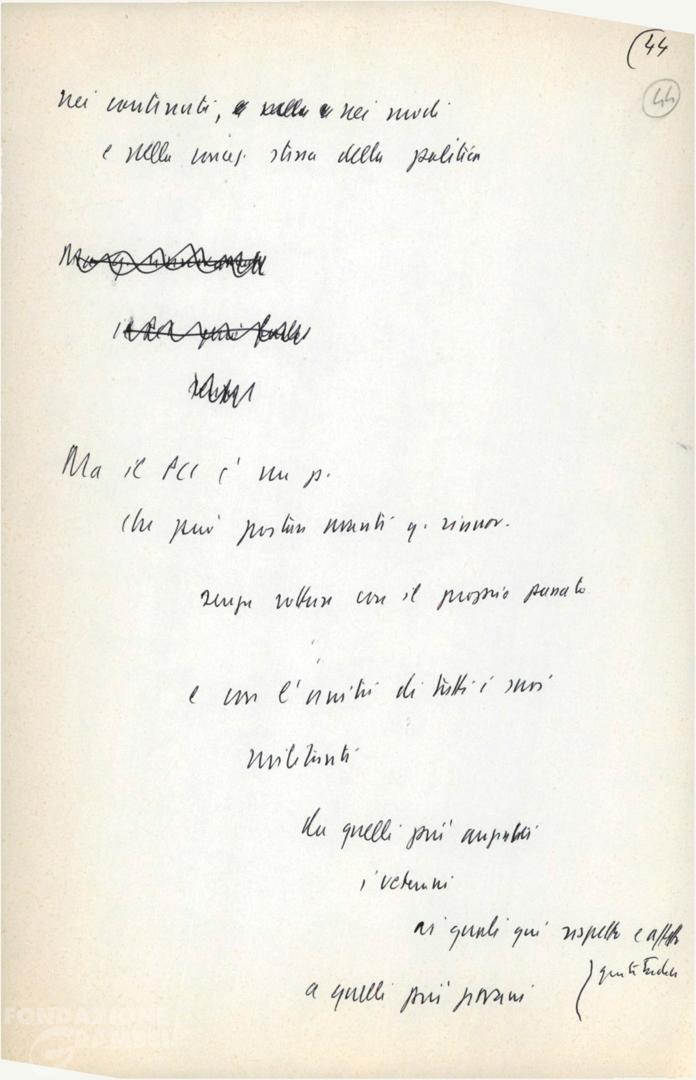 (44
44
nei contenuti, nei modi
e nella concez. stessa della politica
Ma
Ma il PCI è un p.
che può portare avanti q. rinnov.
senza rotture con il proprio passato
e con l'unità di tutti i suoi
militanti
da quelli più
i veterani
ai quali qui rispetto e affetto
gratitudine
a quelli più giovani
FONDAZIONE
GRAMSCI